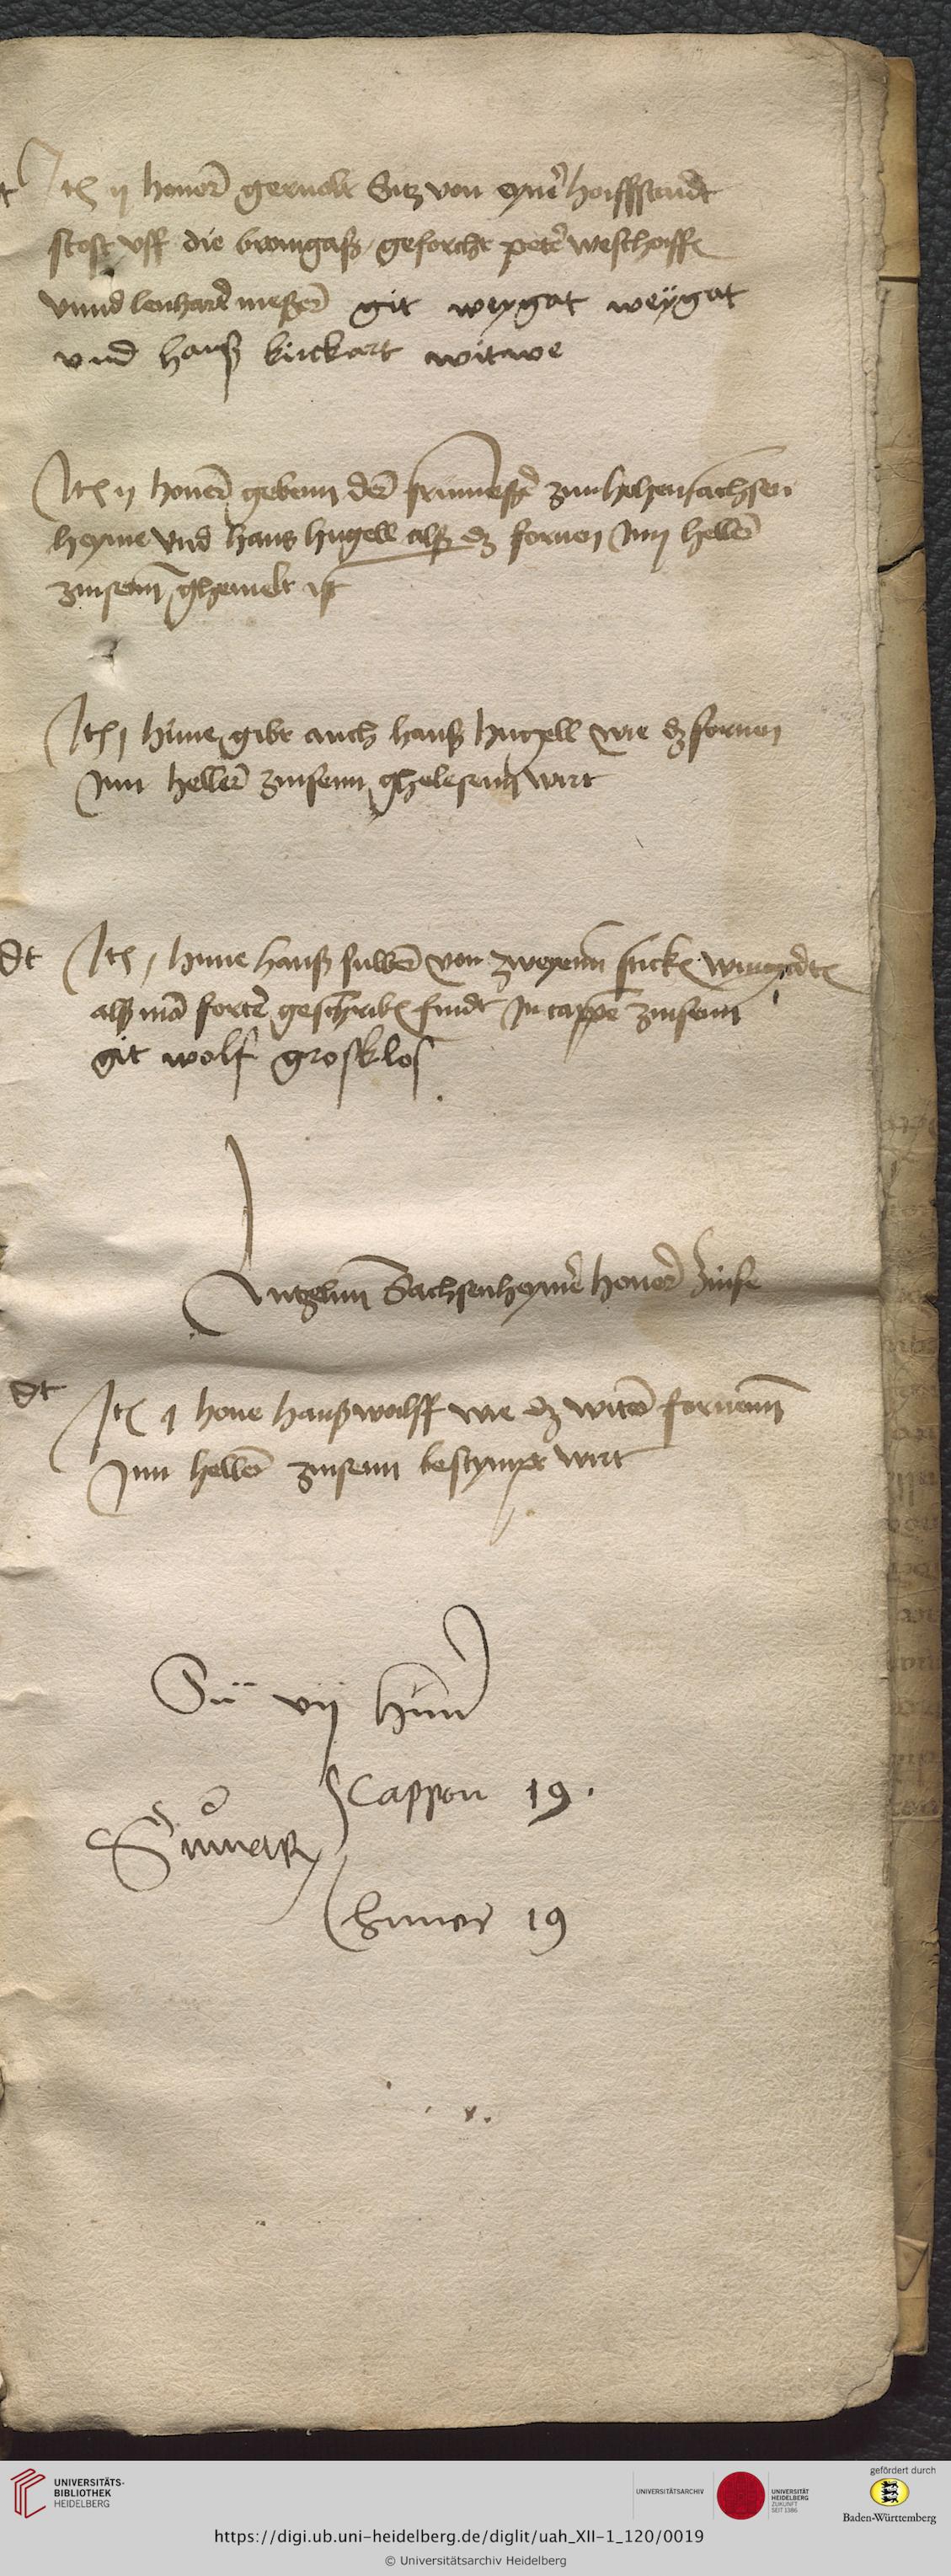 Itē ij honer gernolt Sitz von eyner hoiffstandt
stost vff die bronngaß geforcht peter westhoiffē
vnnd lenhard meßer git weygat weÿgat
vnd hanß burckart witwe
Itē ij honer gebenn der frumesßer zum hohensachsen
heyme vnd hans hugell alß dz fornen Inn heller
zinsenn ghemelt ist
Itē j hune gibt auch hanß hugell wie dz fornen
Inn heller zinsenn ghelesenn wirt
dt Itē j hune hanß suber von zweyenn stickē wingartē
alß mā forter geschribē findt In cappē zinsenn
git wolf grosklos
Sachsenheymer honer zinse
dt Itē j hone hanß wolff wie dz witer fornenn
Inn heller zinsenn bestympt wirt
Sū vij hun
Cappon 19.
Sumarū
huner 19
UNIVERSITÄTS-
BIBLIOTHEK
HEIDELBERG
UNIVERSITÄTSARCHIV
UNIVERSITÄT
HEIDELBERG
ZUKUNFT
SEIT 1386
gefördert durch
Baden-Württemberg
https://digi.ub.uni-heidelberg.de/diglit/uah_XII-1_120/0019
© Universitätsarchiv Heidelberg